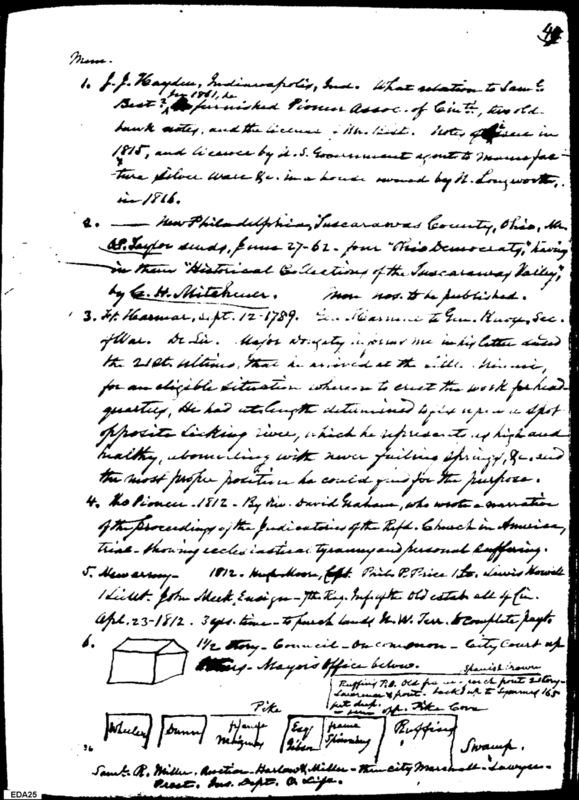 4
Mem.
1. J. J. Hayden, Indianapolis, Ind. What relation to Saml.
Jan 1861, he
Best? furnished Pioneer Assoc. of Cinti., two old
bank notes, and the license Mr. Best. Notes of issue in
1815, and licence by U. S. Government agent to manufac-
ture silver ware &c. in a house owned by N. Longworth,
in 1816.
2. — New Philadelphia, Tuscarawas County, Ohio, Mr.
Taylor sends, June 27-62 - four "Ohio Democrats," having
in them "Historical Collections of the Tuscarawas Valley,"
by C. H. Mitchener. nos. to be published.
3. Ft. Harmar, Sept. 12-1789. Gen. Harmar to Gen. Knox, Sec.
of War. Dr Sir. Major Doughty informed me in his letter dated
the 21st ultimo, that he arrived at the Little Miami,
for an eligible situation whereon to erect the work for head
quarters, He had at length determined to fix upon a spot
opposite Licking river, which he represents as high and
healthy, abounding with never failing springs, &c. and
the most proper position he could find for the purpose.
4. The Pioneer - 1812 - By Rev. David Graham, who wrote a narrative
of the proceedings of the Judicatories of the Refd. Church in America,
trial - showing ecclesiastical tyranny and personal suffering.
5. New army - 1812 - Hugh Moore, Capt. Philo P. Price 1 Lt. Lewis Howell
1 Lieut. John Meek, Ensign - 7th Reg. Inf. of the Old estab. all of Cin.
Apl. 23-1812. 3 yrs. time - to purch lands N. W. Terr. to complete payts.
6. 1 1/2 story - Council - On common - City Court up
stairs - Mayor's Office below.
Spanish brown
Ruffing P.O. Old frame, porch front 2 story -
front. back up to Symmes 165
feet deep. opp. Pike Cove
Pike
Wheeler
Dunn
Esq Gibson
frame
Ruffing
Swamp.
Saml. R. Miller. Auction - Harlow & Miller - then City Marshall - Lawyer -
Prest. Ins. Dept. O. Life.
EDA25